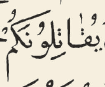 يُقَٰتِلُونَكُمْ